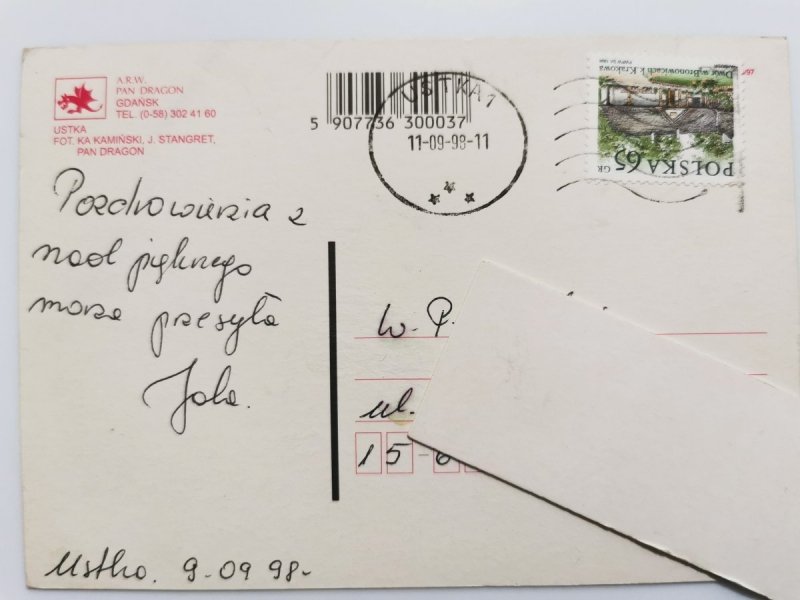 A.R.W.
PAN DRAGON
GDAŃSK
TEL. (0-58) 302 41 60
USTKA
FOT. KA KAMIŃSKI, J. STANGRET,
PAN DRAGON
5 907736 300037
USTKA 1
11-09-98-11
Dwór w Bronowicach k. Krakowa
POLSKA 65
GR
97
Pozdrowienia z
nad pięknego
morza przesyła
Jola.
W. P.
ul.
15-6
Ustka. 9.09 98-